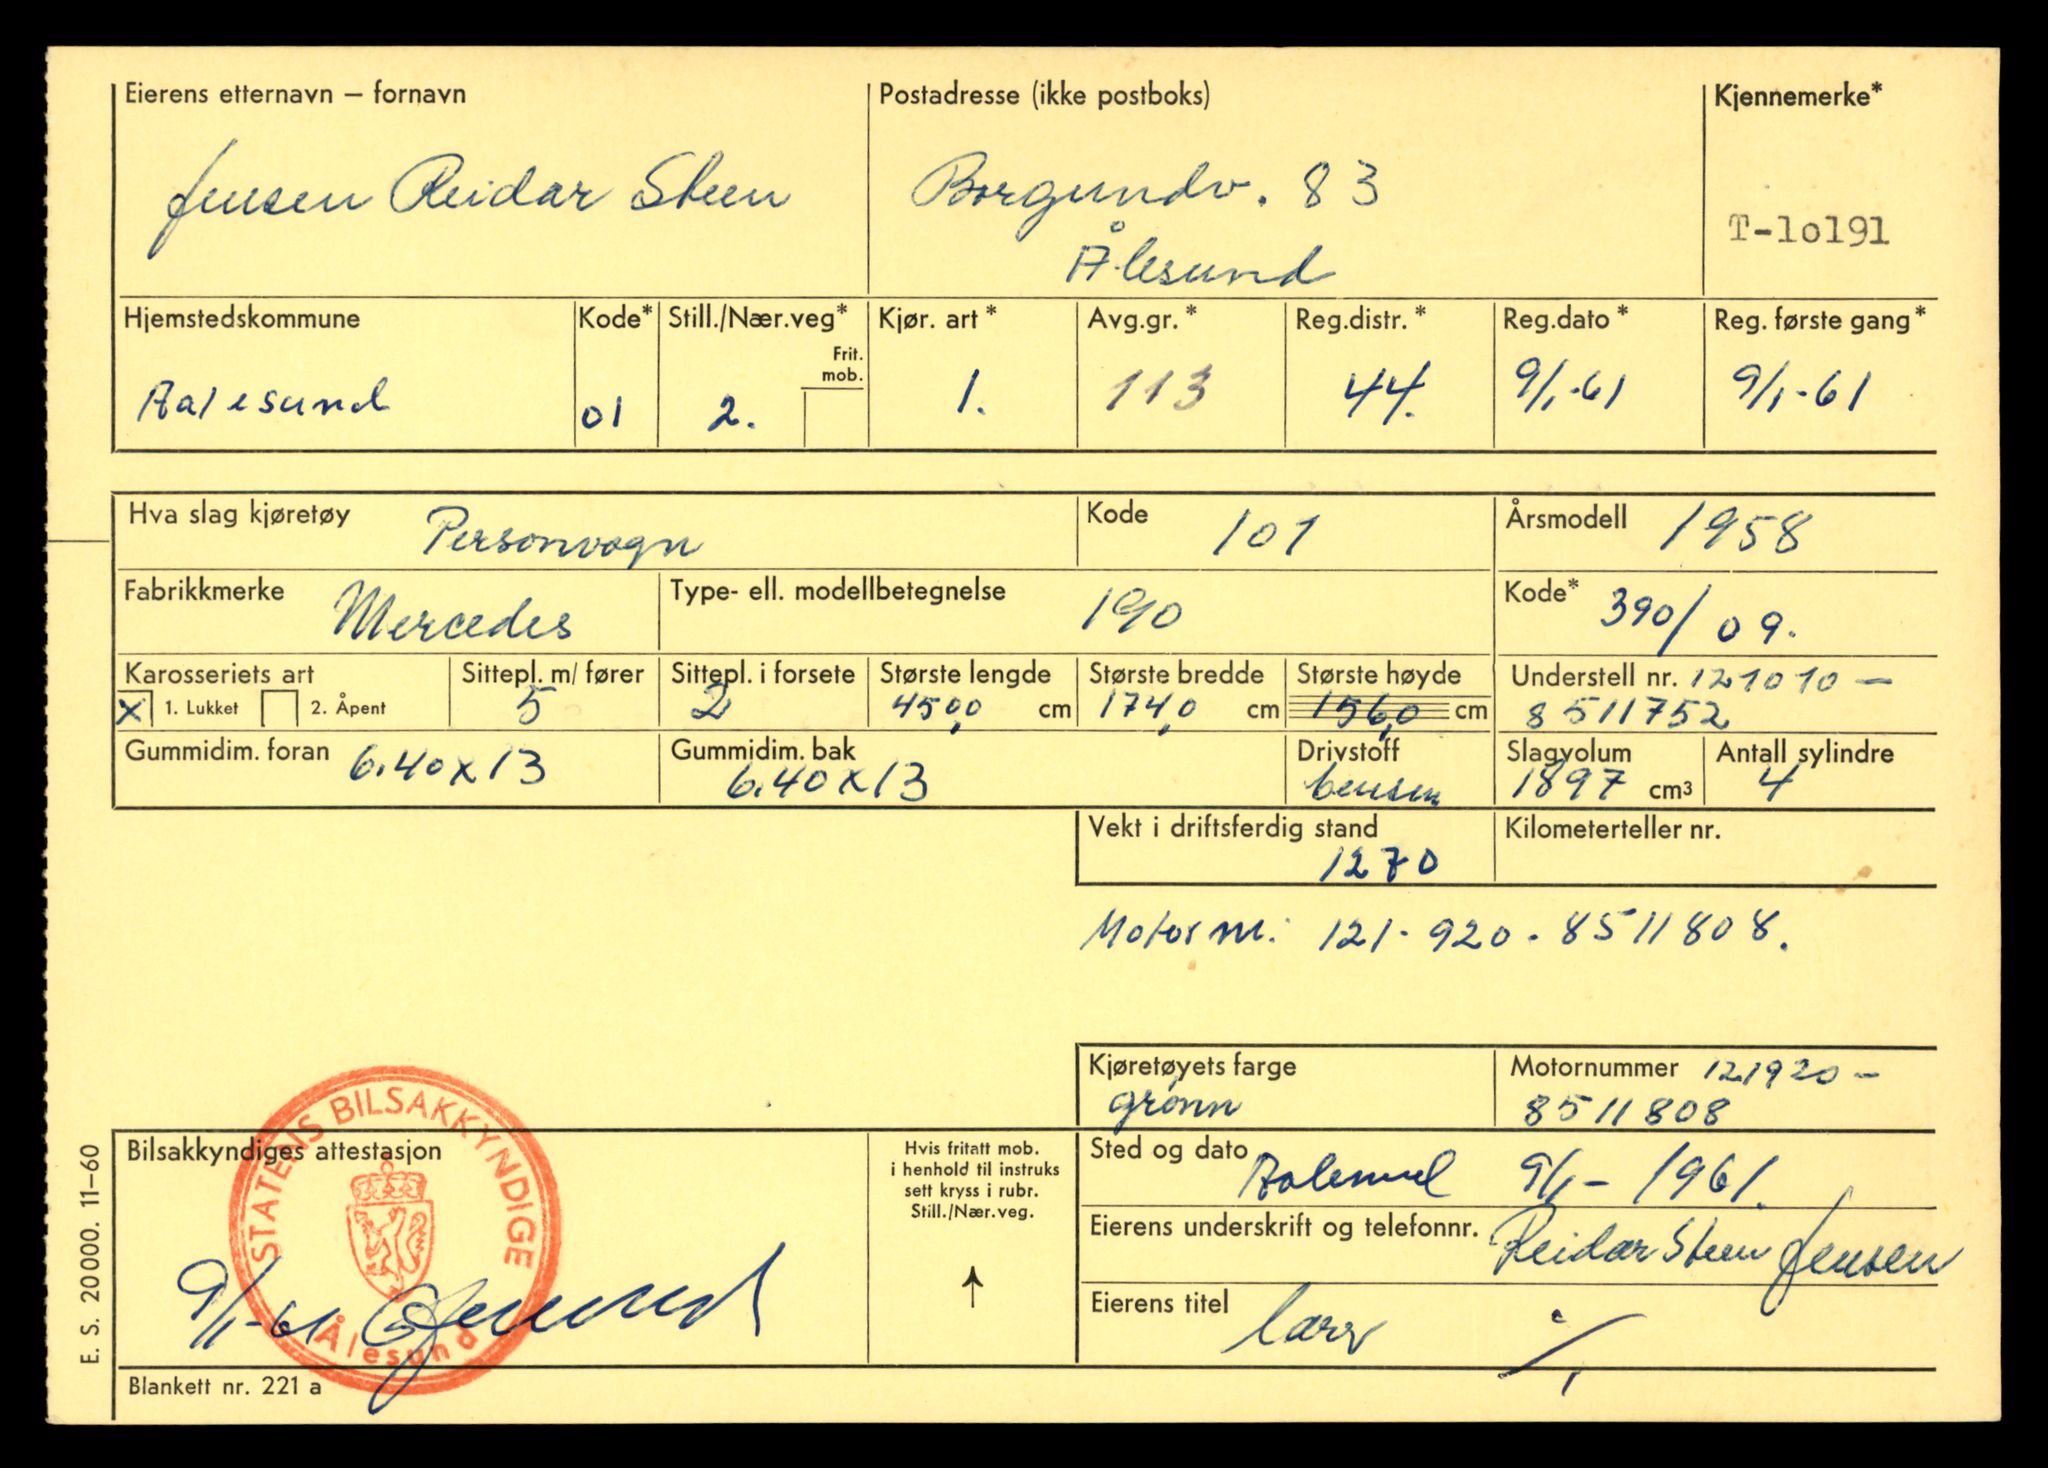 Eierens etternavn – fornavn
Jensen Reidar Steen
Postadresse (ikke postboks)
Borgundv. 83
Ålesund
Kjennemerke*
T-10191
Hjemstedskommune
Aalesund
Kode*
01
Still./Nær.veg*
Frit. mob.
2.
Kjør. art*
1.
Avg.gr.*
113
Reg.distr.*
44.
Reg.dato*
9/1-61
Reg. første gang*
9/1-61
Hva slag kjøretøy
Personvogn
Kode
101
Årsmodell
1958
Fabrikkmerke
Mercedes
Type- ell. modellbetegnelse
190
Kode*
390/09.
Karosseriets art
x 1. Lukket 2. Åpent
Sittepl. m/ fører
5
Sittepl. i forsete
2
Største lengde
450,0 cm
Største bredde
174,0 cm
Største høyde
156,0 cm
Understell nr. 121010-
8511752
Gummidim. foran
6.40x13
Gummidim. bak
6.40x13
Drivstoff
bensin
Slagvolum
1897 cm³
Antall sylindre
4
Vekt i driftsferdig stand
1270
Kilometerteller nr.
Motor nr: 121-920-8511808.
Kjøretøyets farge
grønn
Motornummer 121920-
8511808
Bilsakkyndiges attestasjon
STATENS BILSAKKYNDIGE
Ålesund
9/1-61
Hvis fritatt mob.
i henhold til instruks
sett kryss i rubr.
Still./Nær.veg.
↑
Sted og dato
Aalesund 9/1-1961.
Eierens underskrift og telefonnr.
Reidar Steen Jensen
Eierens titel
Blankett nr. 221 a
E. S. 20000. 11-60